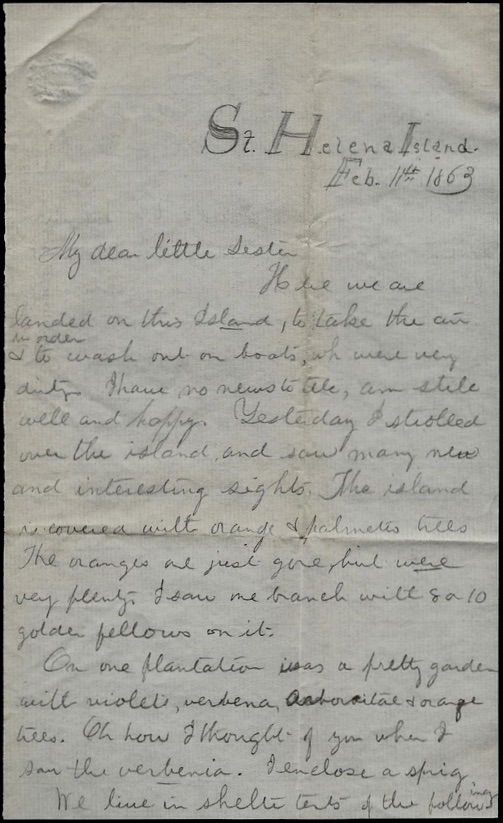 St. Helena Island.
Feb. 11th 1863
My dear little Sister
Here we are
landed on this Island, to take the air
in order
& to wash out our boats, wh were very
dirty. I have no news to tell, am still
well and happy. Yesterday I strolled
over the island, and saw many new
and interesting sights. The island
is covered with orange & palmetto trees
The oranges are just gone, but were
very plenty. I saw one branch with 8 or 10
golden fellows on it.
On one plantation was a pretty garden
with violets, verbena, Arborvitae & orange
trees. Oh how I thought of you when I
saw the verbenia. I enclose a sprig
We live in shelter tents of the following